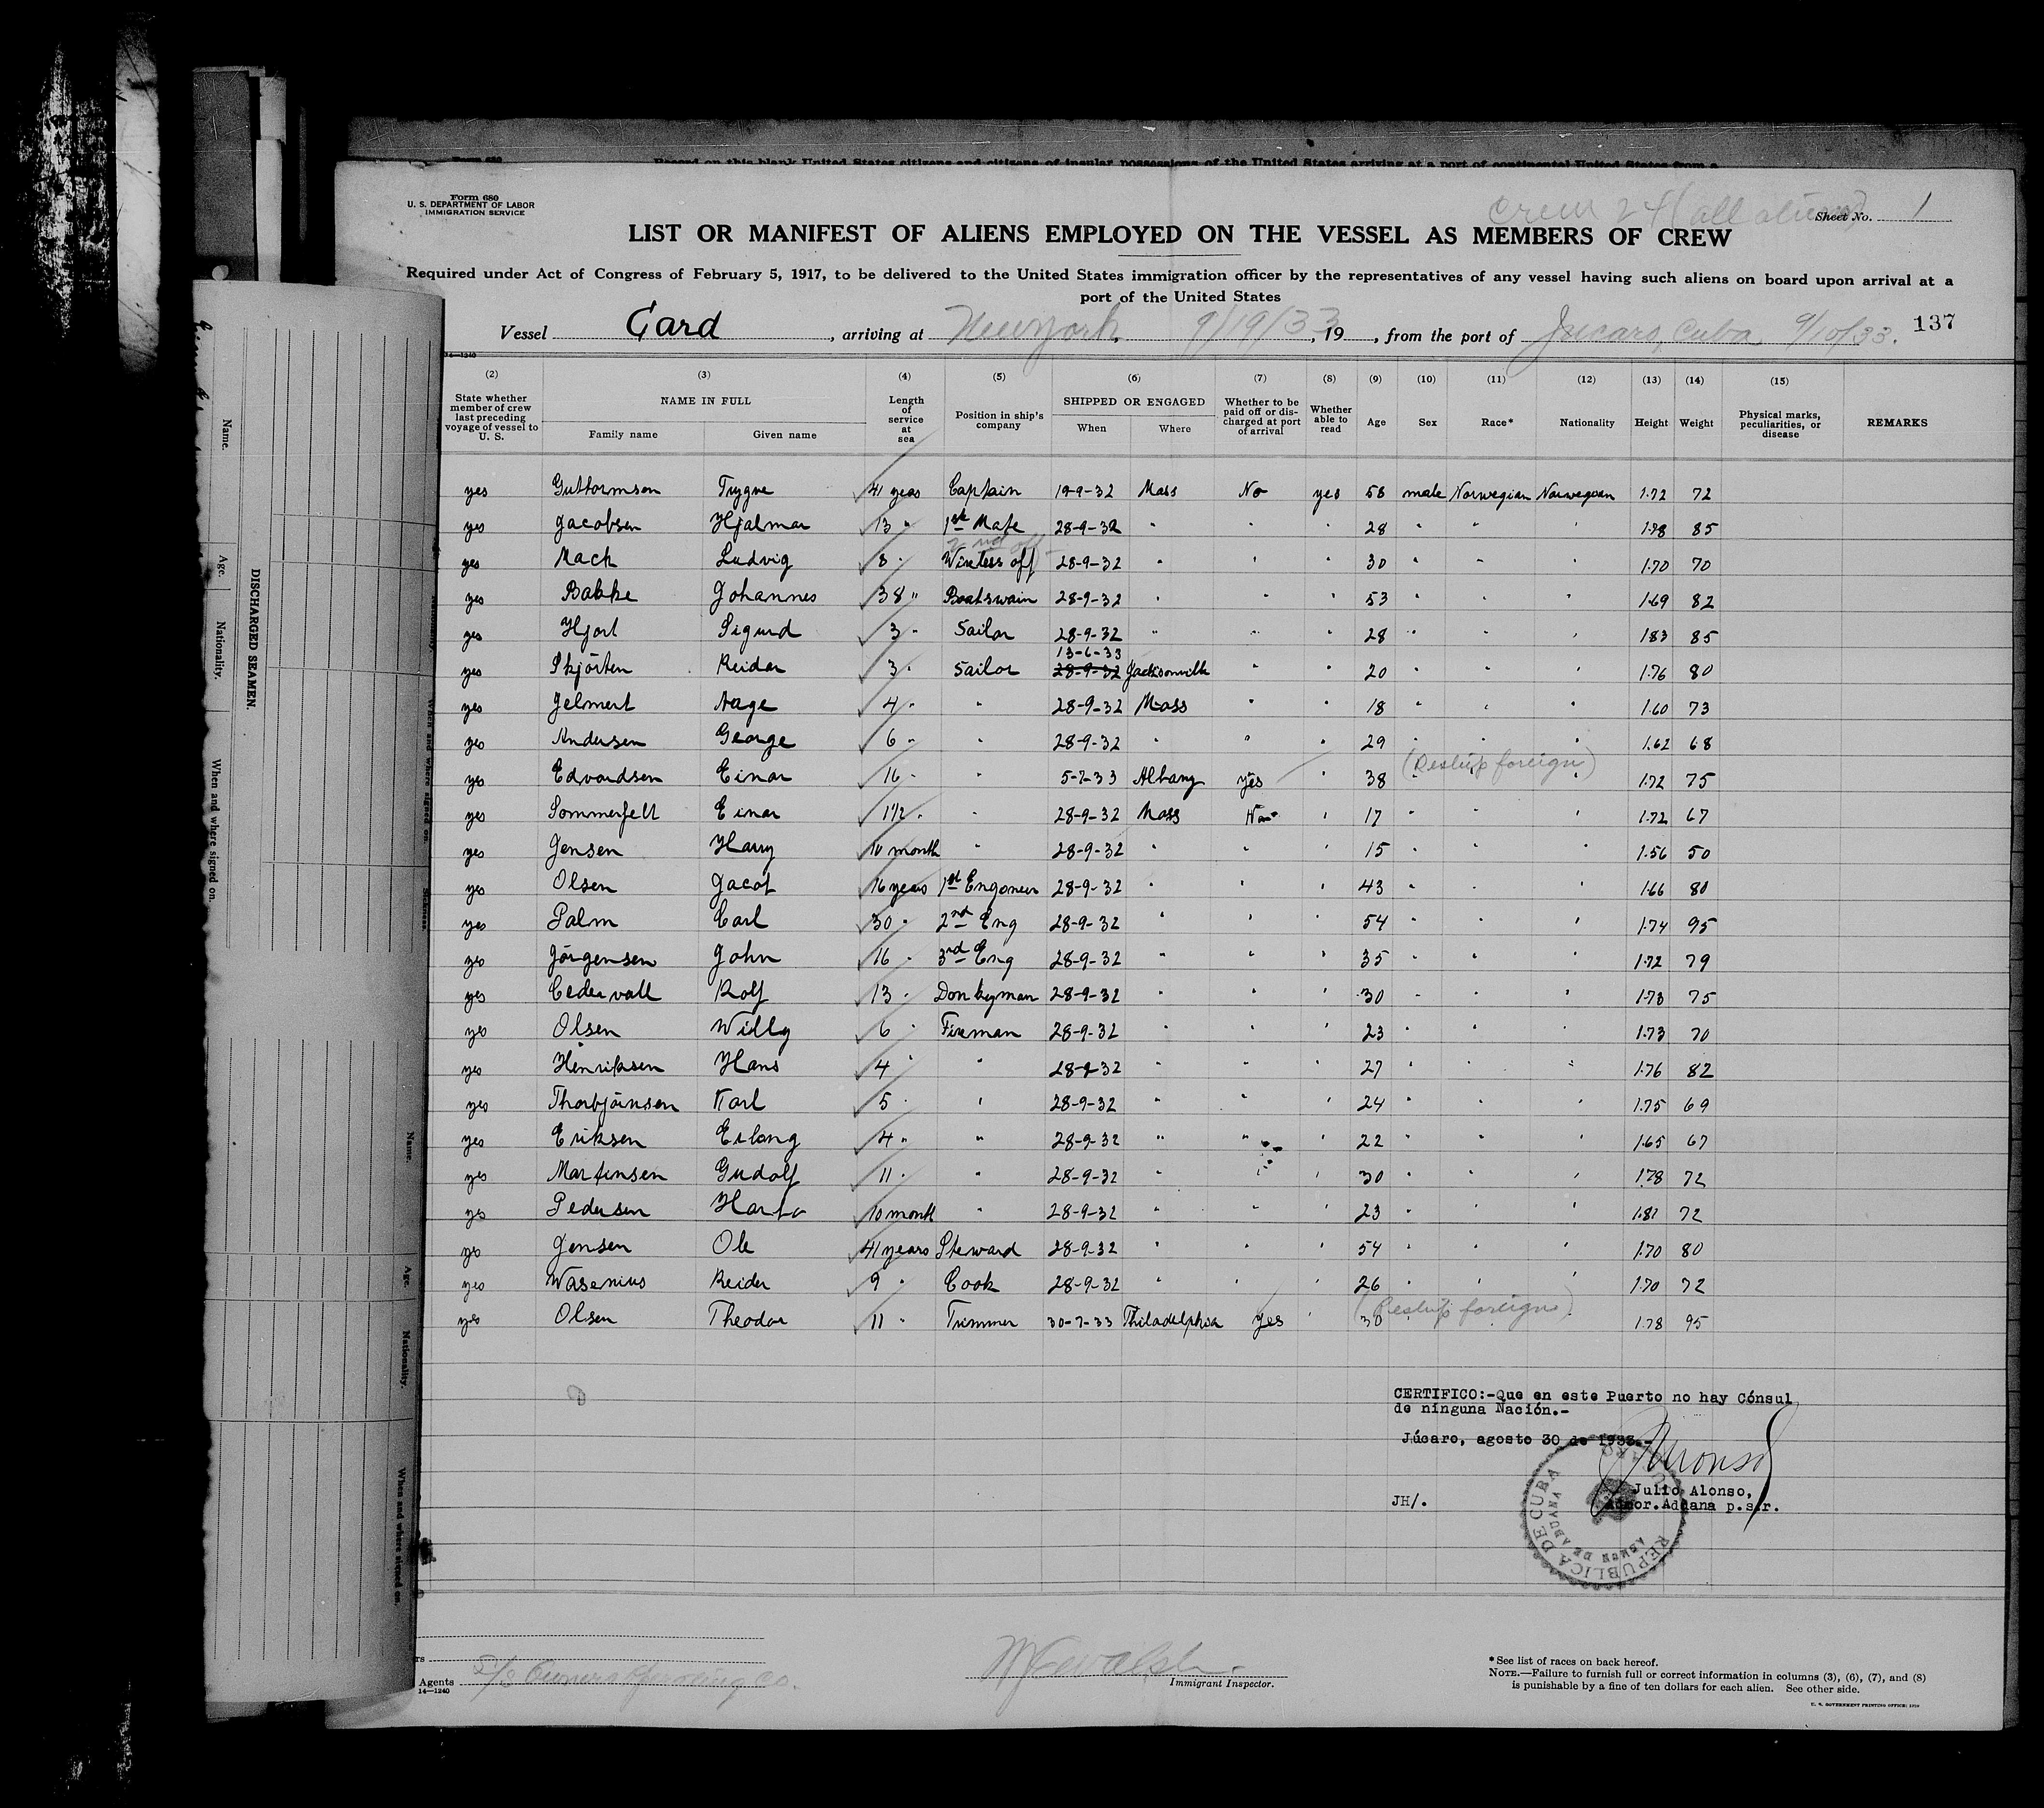 Form 680
U. S. DEPARTMENT OF LABOR
IMMIGRATION SERVICE
Crew 24 (all aliens)
Sheet No. 1
LIST OR MANIFEST OF ALIENS EMPLOYED ON THE VESSEL AS MEMBERS OF CREW
Required under Act of Congress of February 5, 1917, to be delivered to the United States immigration officer by the representatives of any vessel having such aliens on board upon arrival at a
port of the United States
Vessel Gard, arriving at New York. 9/19/33, 19 , from the port of Jucaro, Cuba 9/10/33. 137
14—1240
(2) (3) (4) (5) (6) (7) (8) (9) (10) (11) (12) (13) (14) (15)
State whether member of crew last preceding voyage of vessel to U. S. | NAME IN FULL | Family name | Given name | Length of service at sea | Position in ship's company | SHIPPED OR ENGAGED | When | Where | Whether to be paid off or discharged at port of arrival | Whether able to read | Age | Sex | Race* | Nationality | Height | Weight | Physical marks, peculiarities, or disease | REMARKS
yes Guttormsen Trygve 41 years Captain 19-9-32 Moss No yes 58 male Norwegian Norwegian 1.72 72
yes Jacobsen Hjalmar 13 " 1st Mate 28-9-32 " " " 28 " " " 1.78 85
2nd off
yes Mack Ludvig 8 " Wireless off 28-9-32 " " " 30 " " " 1.70 70
yes Bakke Johannes 38 " Boatswain 28-9-32 " " " 53 " " " 1.69 82
yes Hjort Sigurd 3 " Sailor 28-9-32 " " " 28 " " " 1.83 85
13-6-33
yes Skjörten Reidar 3 " Sailor 28-9-32 Jacksonville " " 20 " " " 1.76 80
yes Jelmert Aage 4 " " 28-9-32 Moss " " 18 " " " 1.60 73
yes Andersen George 6 " " 28-9-32 " " " 29 " " " 1.62 68
yes Edvardsen Einar 16 " " 5-7-33 Albany yes " 38 (Reship foreign) 1.72 75
yes Sommerfelt Einar 1½ " " 28-9-32 Moss No " 17 " " " 1.72 67
yes Jensen Harry 10 month " 28-9-32 " " " 15 " " " 1.56 50
yes Olsen Jacob 16 years 1st Engoneer 28-9-32 " " " 43 " " " 1.66 80
yes Palm Carl 30 " 2nd Eng 28-9-32 " " " 54 " " " 1.74 95
yes Jörgensen John 16 " 3rd Eng 28-9-32 " " " 35 " " " 1.72 79
yes Cedervall Rolf 13 " Donkeyman 28-9-32 " " " 30 " " " 1.73 75
yes Olsen Willy 6 " Fireman 28-9-32 " " " 23 " " " 1.73 70
yes Henriksen Hans 4 " " 28-9-32 " " " 27 " " " 1.76 82
yes Thorbjörnsen Karl 5 " " 28-9-32 " " " 24 " " " 1.75 69
yes Eriksen Erlong 4 " " 28-9-32 " " " 22 " " " 1.65 67
yes Martinsen Gudolf 11 " " 28-9-32 " " " 30 " " " 1.78 72
yes Pedersen 10 month " 28-9-32 " " " 23 " " " 1.81 72
yes Jensen Ole 41 years Steward 28-9-32 " " " 54 " " " 1.70 80
yes Wasenius Reider 9 " Cook 28-9-32 " " " 26 " " " 1.70 72
yes Olsen Theodor 11 " Trimmer 30-7-33 Philadelphia yes " 30 (Reship foreign) 1.78 95
CERTIFICO:-Que en este Puerto no hay Cónsul
de ninguna Nación.-
Júcaro, agosto 30 de 1933.-
Julio Alonso,
Admor.Aduana p.s.r.
JH/.
REPUBLICA DE CUBA
ADUANA
Agents
14—1240
Immigrant Inspector.
* See list of races on back hereof.
NOTE.—Failure to furnish full or correct information in columns (3), (6), (7), and (8)
is punishable by a fine of ten dollars for each alien. See other side.
U. S. GOVERNMENT PRINTING OFFICE
DISCHARGED SEAMEN.
Name.
Age.
Nationality.
When and where signed on.
Name.
Age.
Nationality.
When and where signed on.